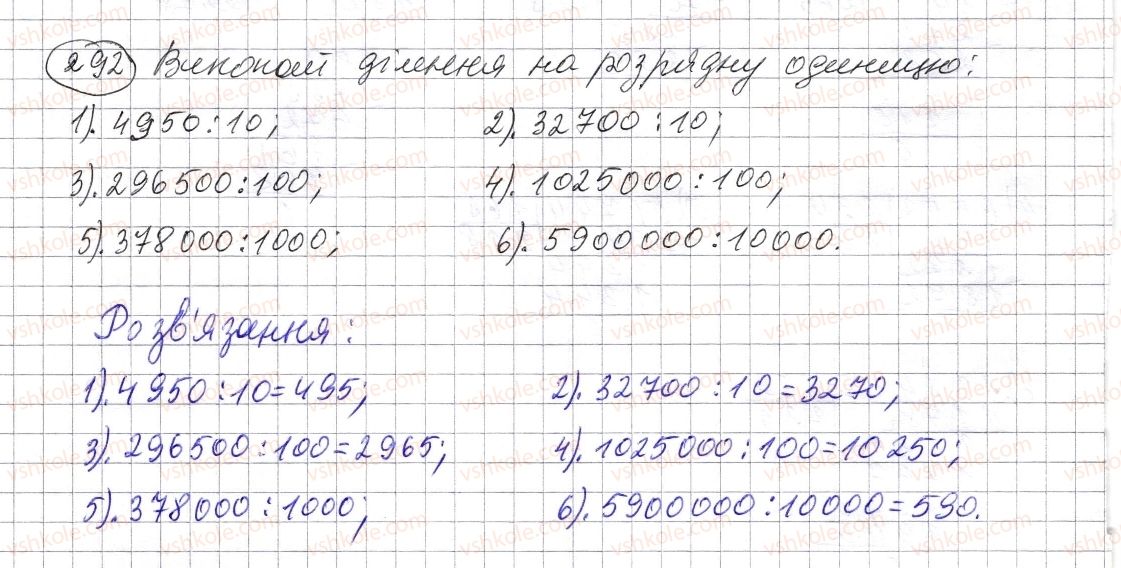 292 Виконай ділення на розрядну одиницю:
1). 4950:10; 2). 32700:10;
3). 296500:100; 4). 1025000:100;
5). 378000:1000; 6). 5900000:10000.
Розв'язання:
1). 4950:10=495; 2). 32700:10=3270;
3). 296500:100=2965; 4). 1025000:100=10250;
5). 378000:1000; 6). 5900000:10000=590.
vshkole.com